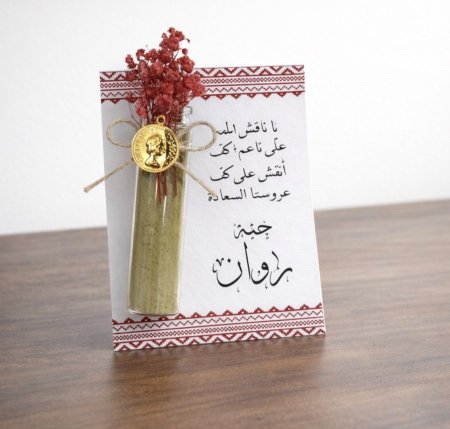 يا ناقش الحنه
على ناعم؛ كف
أنقش على كف
عروستنا السعادة
حنِة
روان